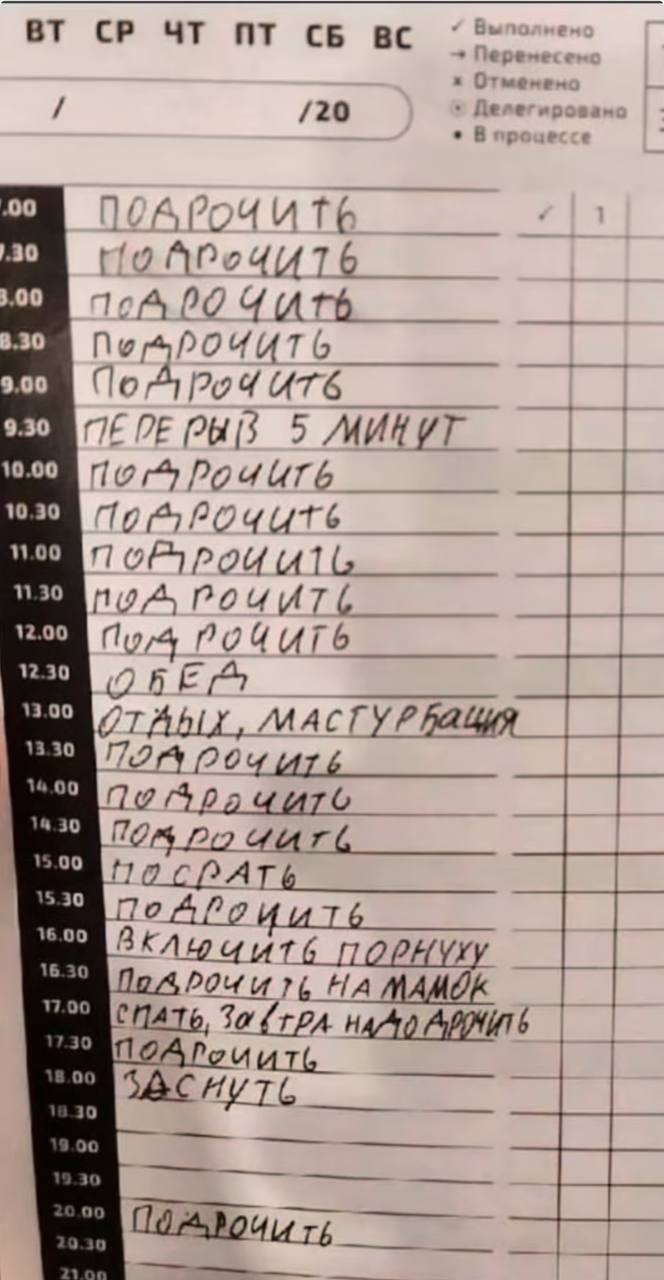 ВТ СР ЧТ ПТ СБ ВС
/ /20
✓ Выполнено
→ Перенесено
× Отменено
Делегировано
• В процессе
.00 ПОДРОЧИТЬ ✓ 1
.30 ПОДРОЧИТЬ
8.00 ПОДРОЧИТЬ
8.30 ПОДРОЧИТЬ
9.00 ПОДРОЧИТЬ
9.30 ПЕРЕРЫВ 5 МИНУТ
10.00 ПОДРОЧИТЬ
10.30 ПОДРОЧИТЬ
11.00 ПОДРОЧИТЬ
11.30 ПОДРОЧИТЬ
12.00 ПОДРОЧИТЬ
12.30 ОБЕД
13.00 ОТДЫХ, МАСТУРБация
13.30 ПОДРОЧИТЬ
14.00 ПОДРОЧИТЬ
14.30 ПОДРОЧИТЬ
15.00 ПОСРАТЬ
15.30 ПОДРОЧИТЬ
16.00 ВКЛЮЧИТЬ ПОРНУХУ
16.30 ПОДРОЧИТЬ НА МАМОК
17.00 СПАТЬ, ЗАвТРА НАДО ДРОЧИТЬ
17.30 ПОДРОЧИТЬ
18.00 ЗАСНУТЬ
18.30
19.00
19.30
20.00 ПОДРОЧИТЬ
20.30
21.00